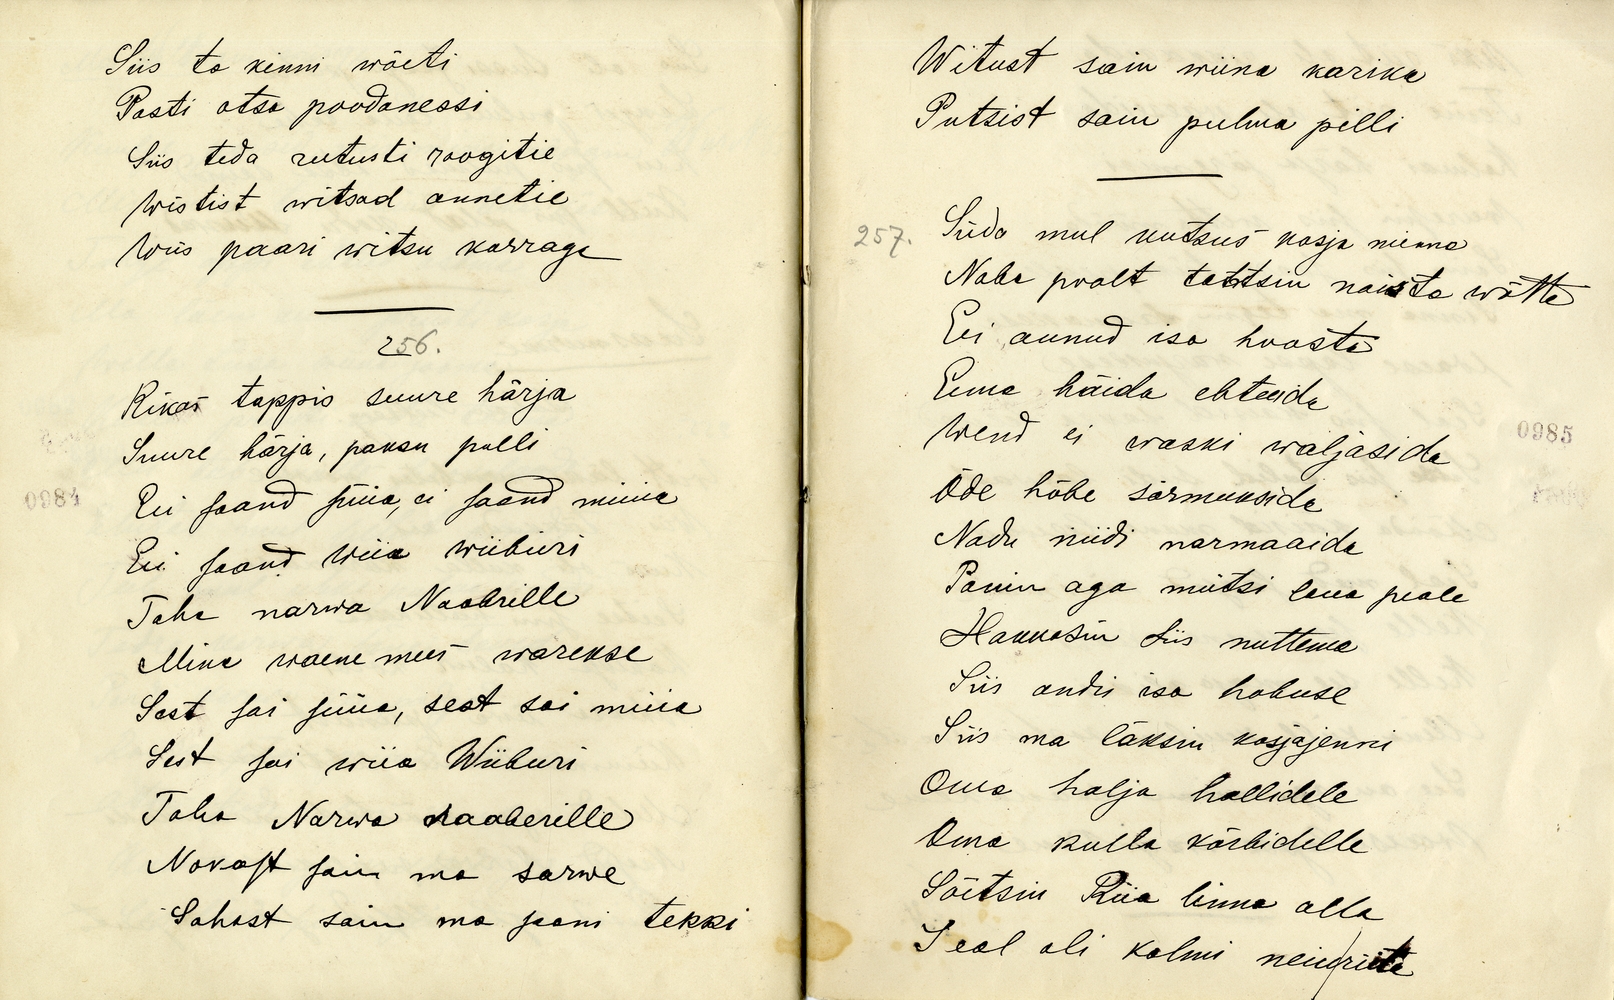 Siis ta kinni wõeti
Posti otsa poodanessi
Siis teda rutusti roogitie
Wistist witsad annetie
Wiis paari witsu korraga
256.
Rikas tappis suure härja
Suure härja, paksu pulli
Ei saand süüa, ei saand müüa
Ei saand wiia wiiburi
Taha narwa Naabrille
Mina waene mees warekse
Sest sai süüa, sest sai müüa
Sest sai wiia Wiiburi
Taha Narwa naaberille
Nokast sain ma sarwe
Sabast sain ma saani tekki
0984
Witust sain wiina karika
Putsist sain pulma pilli
257.
Süda mul kutsus kosja minna
Naba poolt tahtsin naista wõtta
Ei annud isa hoosta
Ema häida ehteida
Wend ei waski waljasida
Õde hõbe sõrmuksida
Nadu niidi narmaaida
Panin aga mütsi laua peale
Hakkasin siis nuttema
Siis andis isa hobuse
Siis ma läksin kosjajenni
Oma halja hallidele
Oma kulla kõrbidelle
Sõitsin Riia linna alla
Seal oli kolmi neiurida
0985